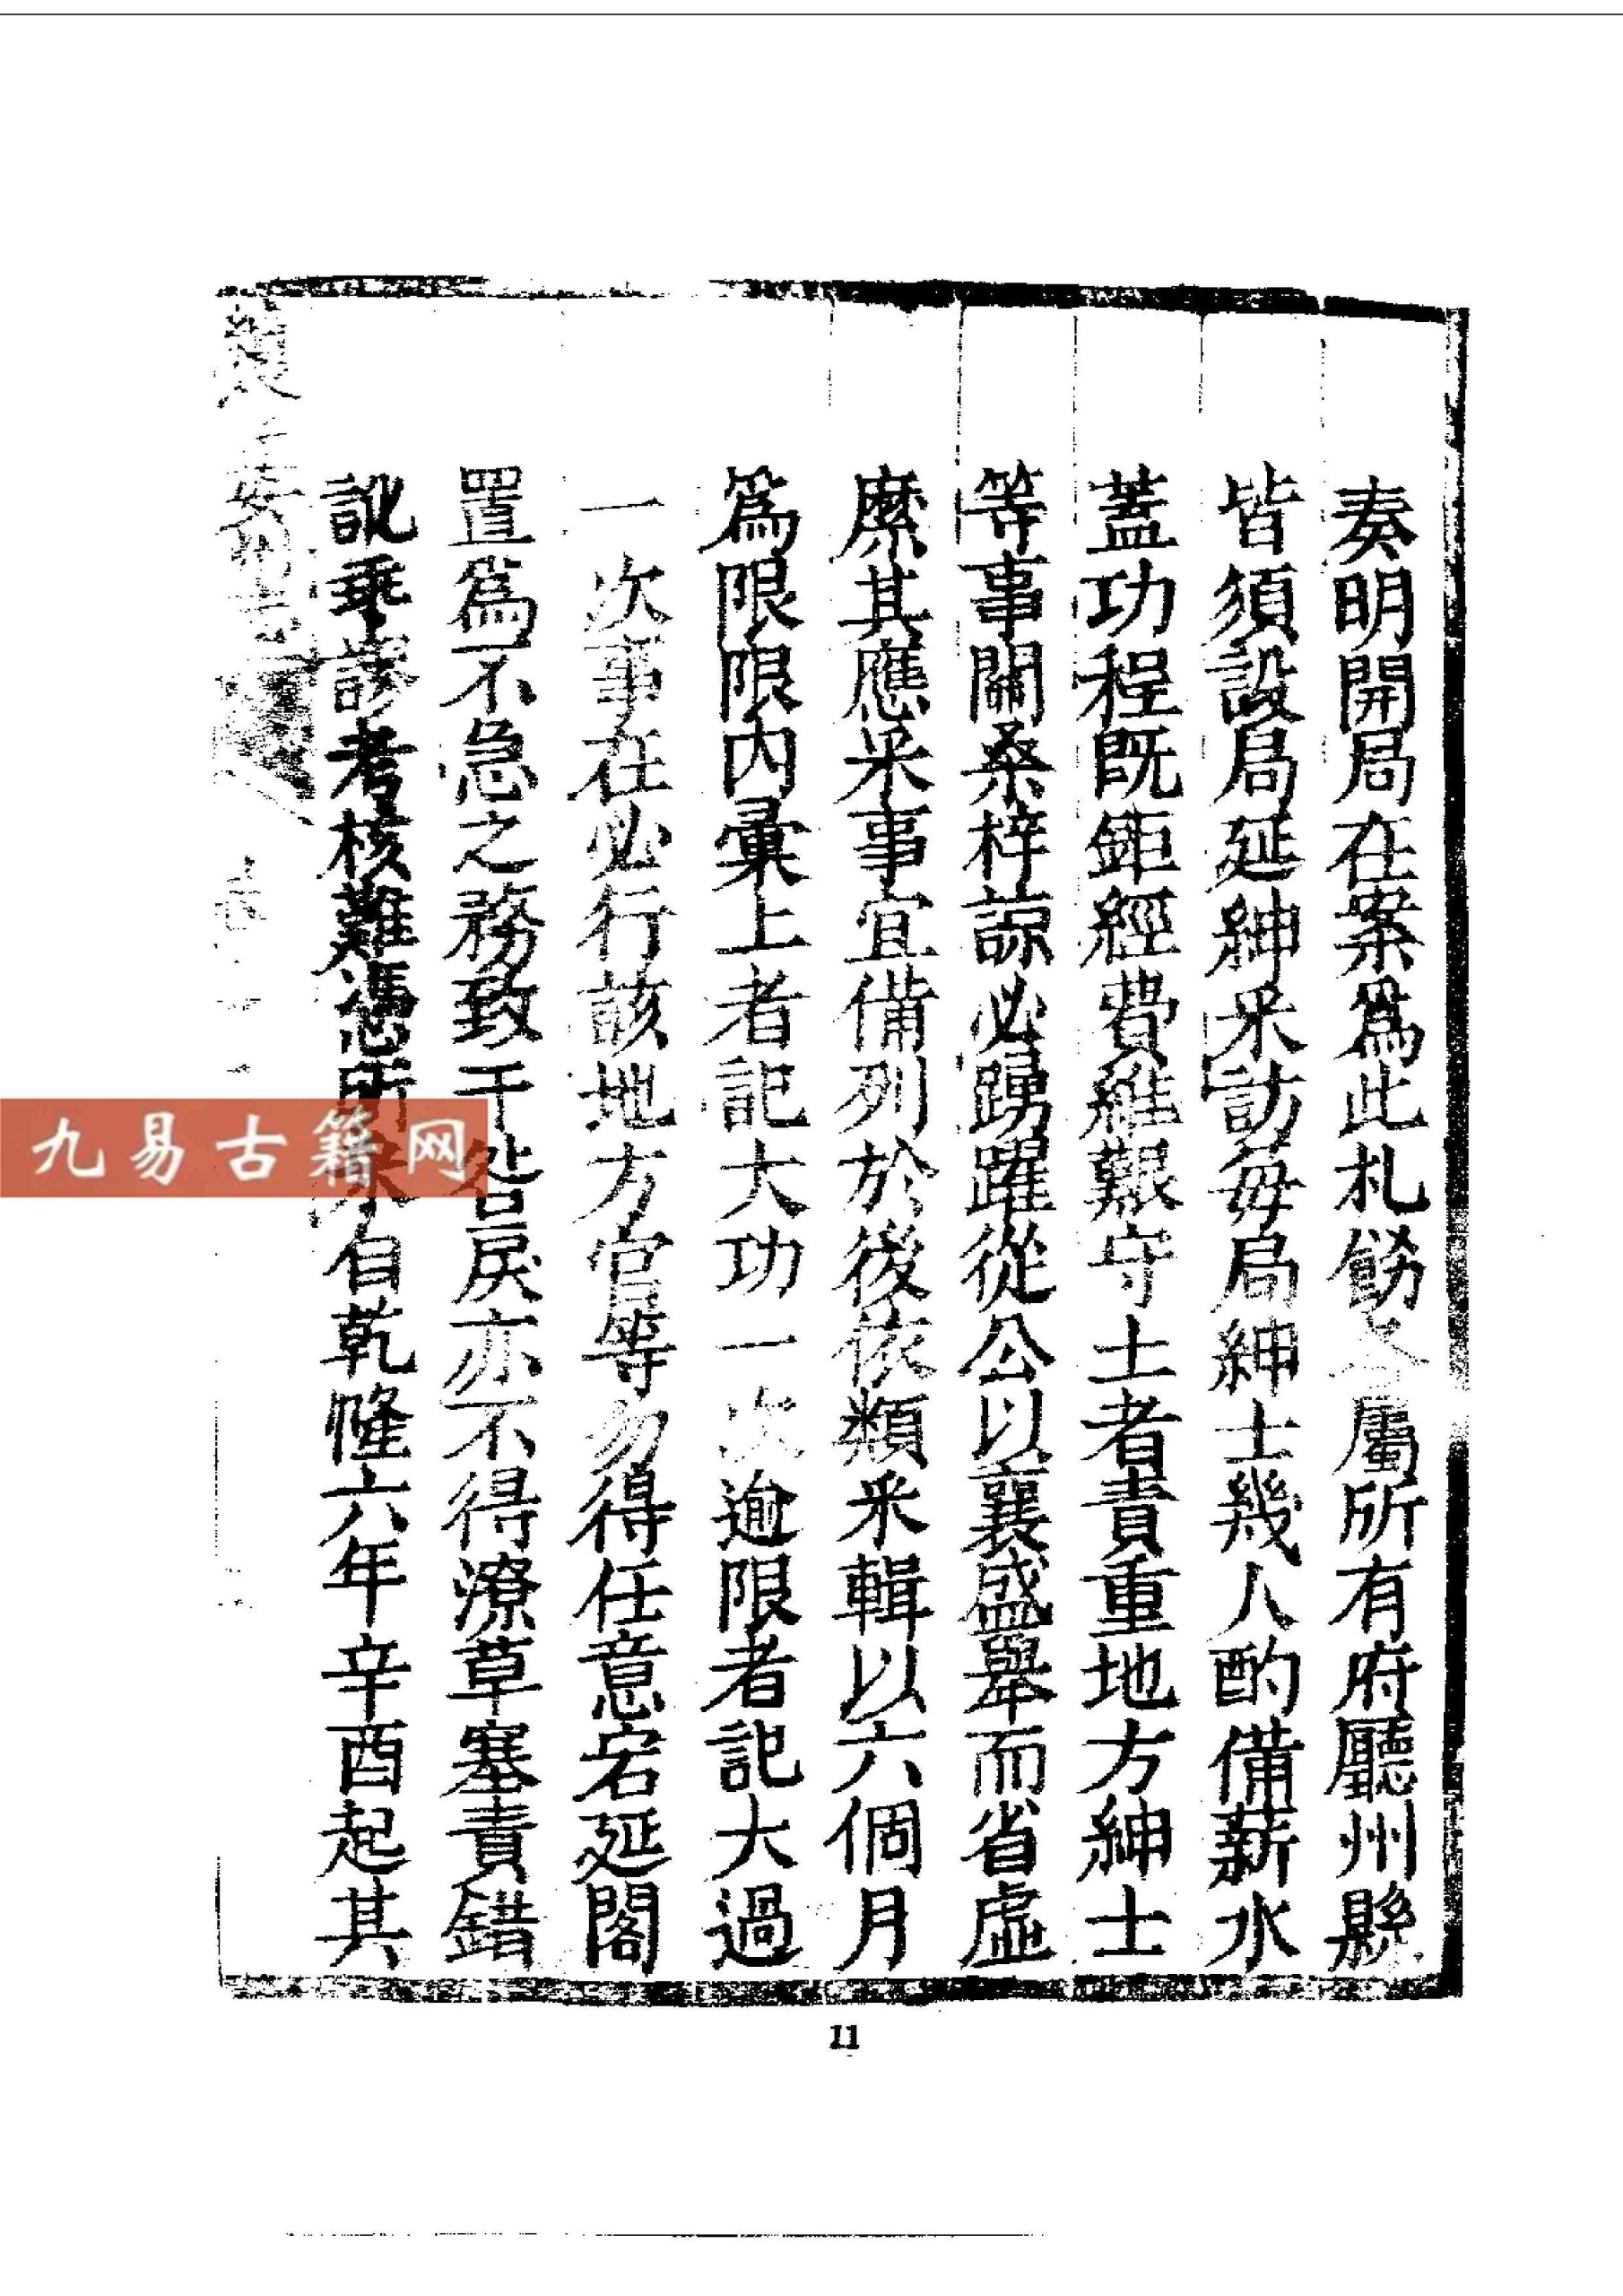 奏明開局在案爲此札飭各屬所有府廳州縣
皆須設局延紳采訪每局紳士幾人酌備薪水
蓋功程既鉅經費維艱守土者責重地方紳士
等事關桑梓諒必踴躍從公以襄盛舉而省虛
糜其應采事宜備列於後依類采輯以六個月
爲限限內彙上者記大功一次逾限者記大過
一次事在必行該地方官等勿得任意宕延閣
置爲不急之務致干咎戾亦不得潦草塞責錯
訛乖謬考核難憑所采自乾隆六年辛酉起其
九易古籍网
11